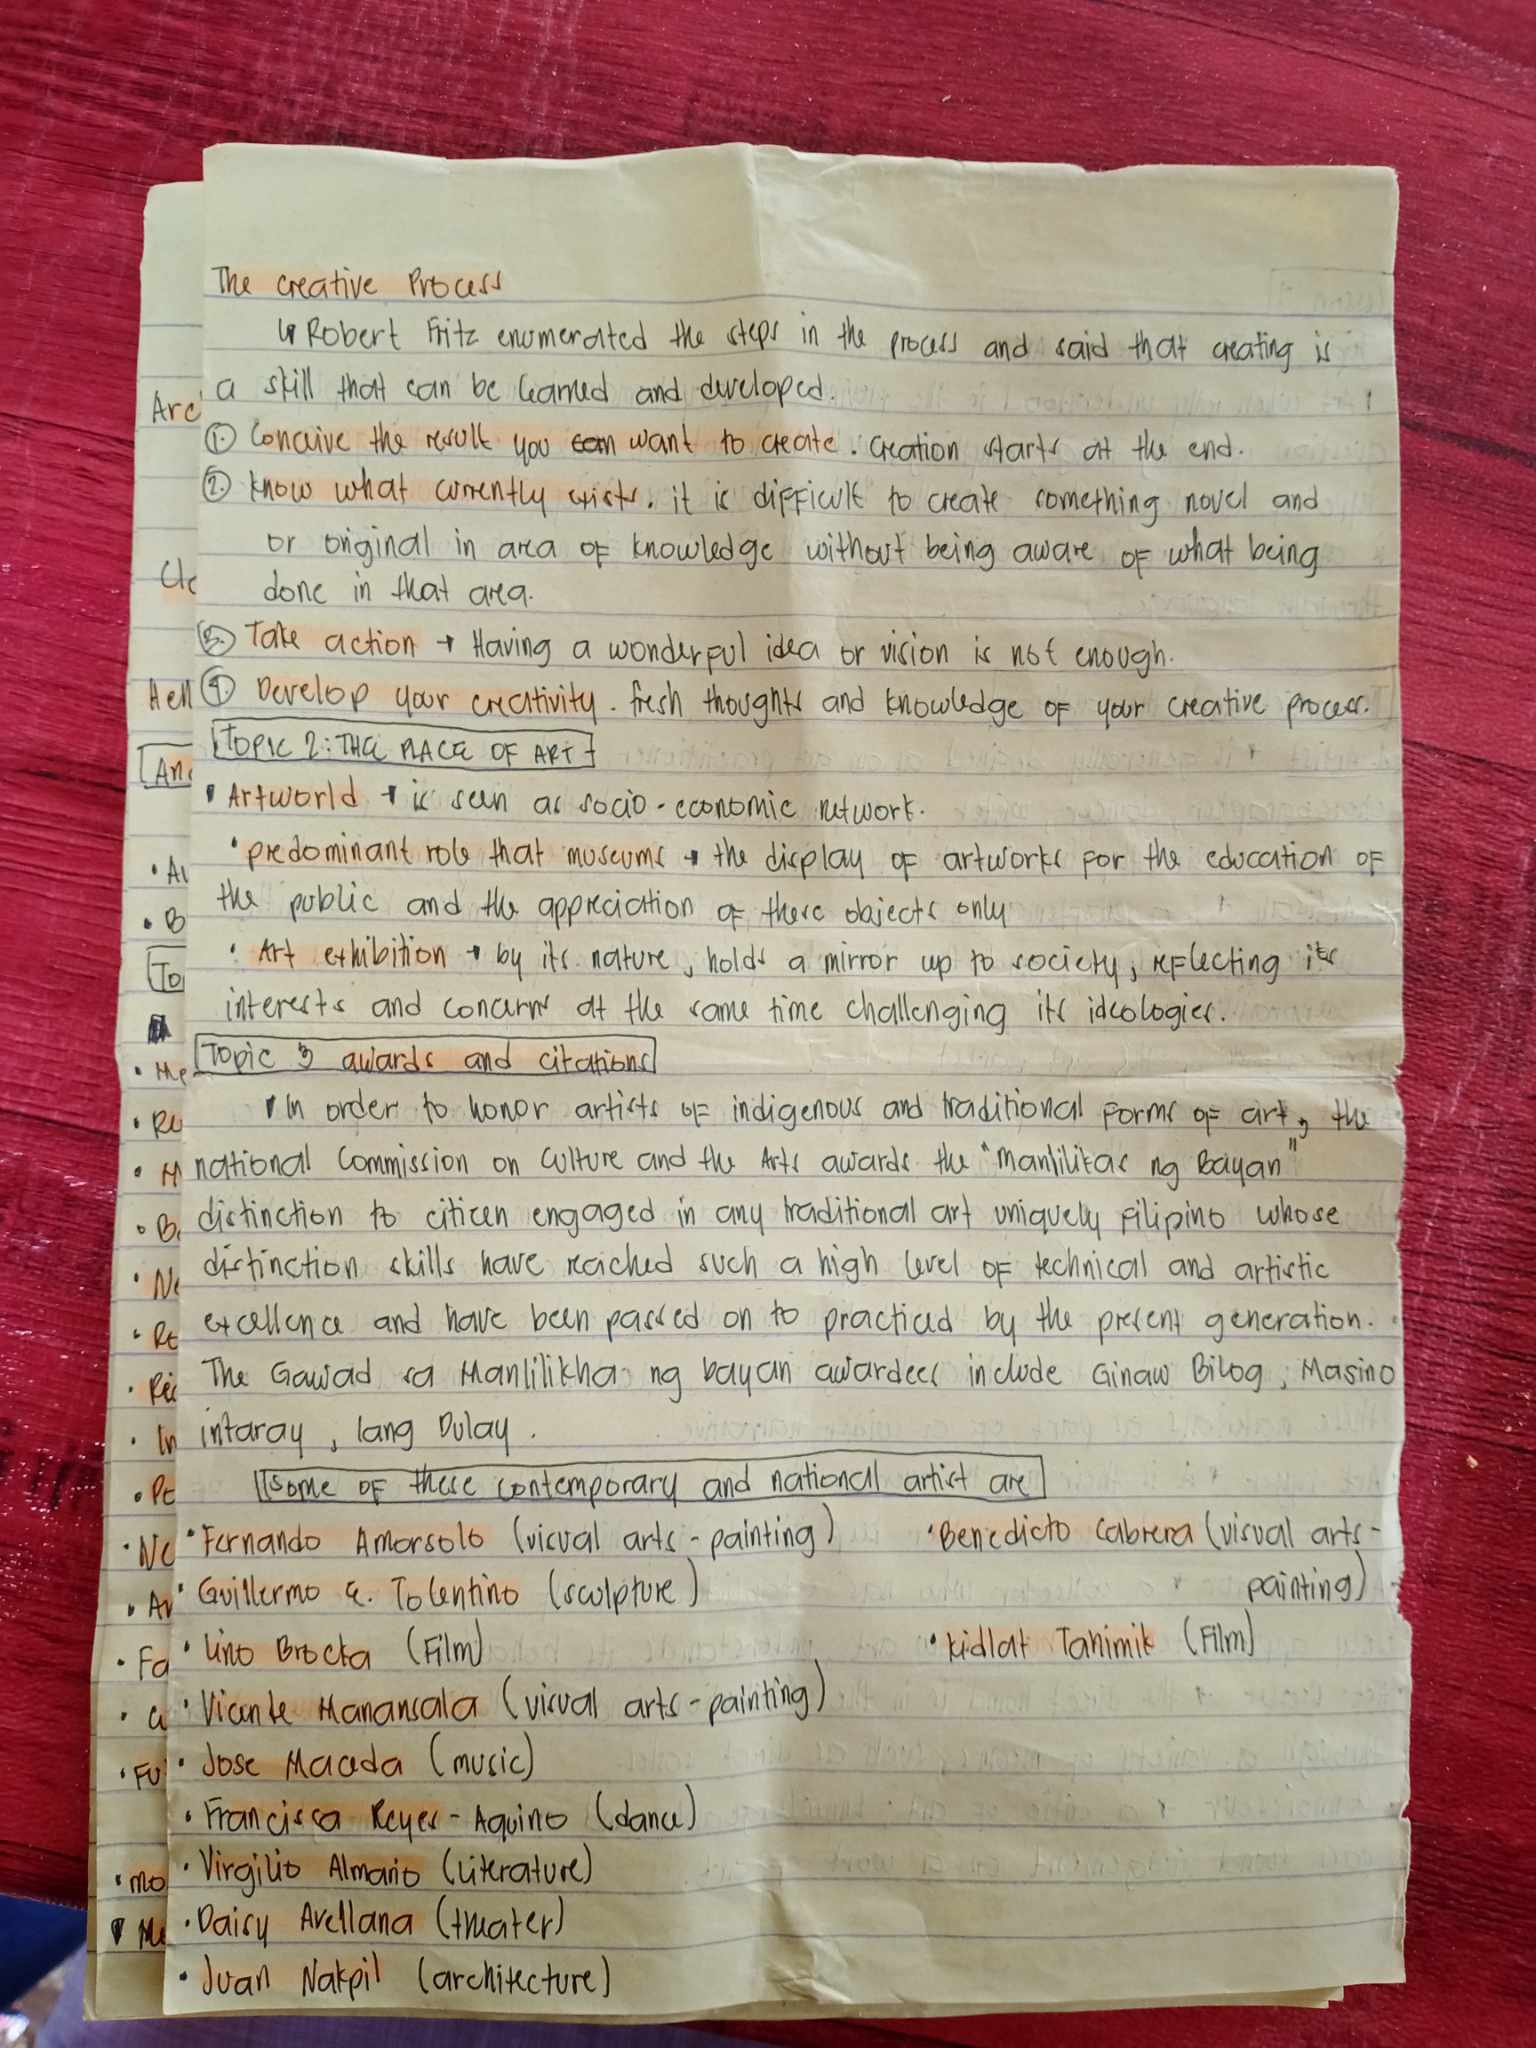 The creative Process
↳ Robert Fritz enumerated the steps in the process and said that creating is
a skill that can be learned and developed.
1. Conceive the result you can want to create. Creation starts at the end.
2. know what currently exists. it is difficult to create something novel and
or original in area of knowledge without being aware of what being
done in that area.
3. Take action → Having a wonderful idea or vision is not enough.
4. Develop your creativity. fresh thoughts and knowledge of your creative process.
TOPIC 2: THE PLACE OF ART
• Artworld → is seen as socio-economic network.
• predominant role that museums → the display of artworks for the education of
the public and the appreciation of these objects only
• Art exhibition → by its nature, holds a mirror up to society, reflecting its
interests and concerns at the same time challenging its ideologies.
Topic 3 awards and citations
In order to honor artists of indigenous and traditional forms of art, the
national Commission on Culture and the Arts awards the "Manlilikas ng Bayan"
distinction to citizen engaged in any traditional art uniquely Filipino whose
distinction skills have reached such a high level of technical and artistic
excellence and have been passed on to practiced by the present generation.
The Gawad sa Manlilikha ng bayan awardees include Ginaw Bilog, Masino
intaray, lang Dulay.
some of these contemporary and national artist are
• Fernando Amorsolo (visual arts - painting)
• Benedicto Cabrera (visual arts -
painting)
• Guillermo E. Tolentino (sculpture)
• Lino Brocka (Film)
• Kidlat Tahimik (Film)
• Vicente Manansala (visual arts - painting)
• Jose Maceda (music)
• Francisca Reyes - Aquino (dance)
• Virgilio Almario (Literature)
• Daisy Avellana (theater)
• Juan Nakpil (architecture)